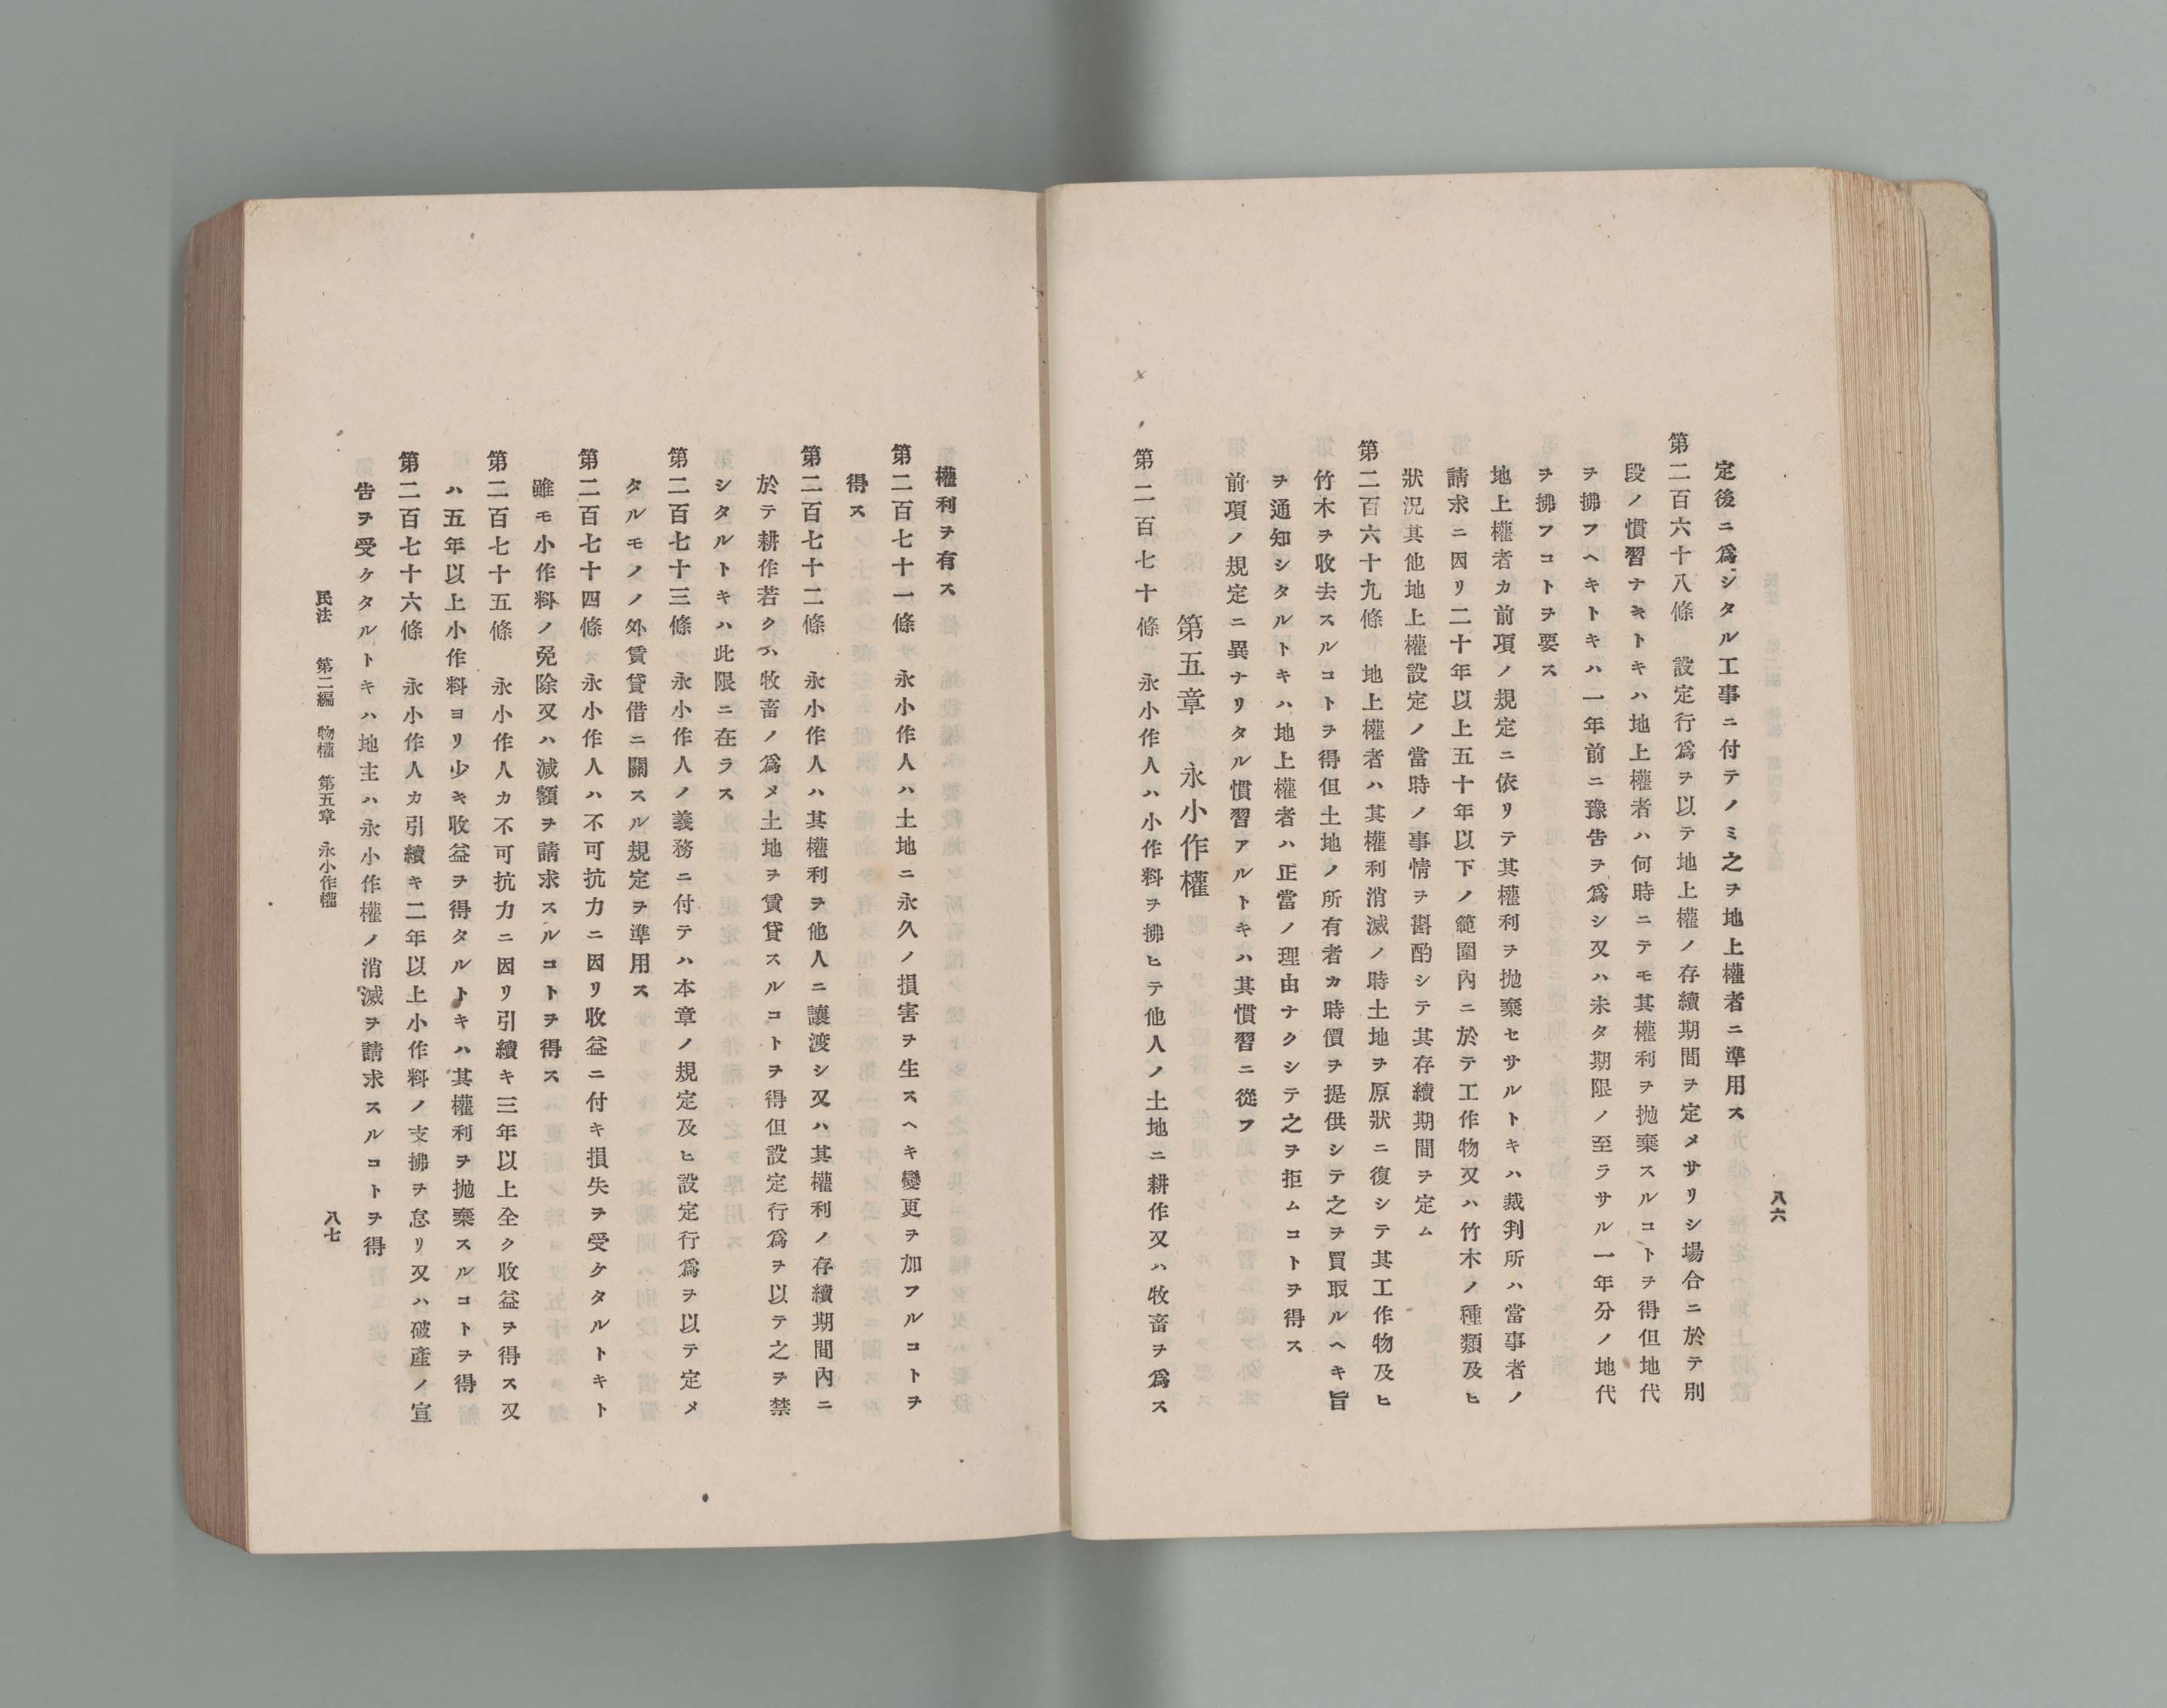 八六
定後ニ爲シタル工事ニ付テノミ之ヲ地上權者ニ準用ス
第二百六十八條　設定行爲ヲ以テ地上權ノ存續期間ヲ定メサリシ場合ニ於テ別
段ノ慣習ナキトキハ地上權者ハ何時ニテモ其權利ヲ抛棄スルコトヲ得但地代
ヲ拂フヘキトキハ一年前ニ豫告ヲ爲シ又ハ未タ期限ノ至ラサル一年分ノ地代
ヲ拂フコトヲ要ス
地上權者カ前項ノ規定ニ依リテ其權利ヲ抛棄セサルトキハ裁判所ハ當事者ノ
請求ニ因リ二十年以上五十年以下ノ範圍內ニ於テ工作物又ハ竹木ノ種類及ヒ
狀況其他地上權設定ノ當時ノ事情ヲ斟酌シテ其存續期間ヲ定ム
第二百六十九條　地上權者ハ其權利消滅ノ時土地ヲ原狀ニ復シテ其工作物及ヒ
竹木ヲ收去スルコトヲ得但土地ノ所有者カ時價ヲ提供シテ之ヲ買取ルヘキ旨
ヲ通知シタルトキハ地上權者ハ正當ノ理由ナクシテ之ヲ拒ムコトヲ得ス
前項ノ規定ニ異ナリタル慣習アルトキハ其慣習ニ從フ
第五章　永小作權
第二百七十條　永小作人ハ小作料ヲ拂ヒテ他人ノ土地ニ耕作又ハ牧畜ヲ爲ス
權利ヲ有ス
第二百七十一條　永小作人ハ土地ニ永久ノ損害ヲ生スヘキ變更ヲ加フルコトヲ
得ス
第二百七十二條　永小作人ハ其權利ヲ他人ニ讓渡シ又ハ其權利ノ存續期間內ニ
於テ耕作若クハ牧畜ノ爲メ土地ヲ賃貸スルコトヲ得但設定行爲ヲ以テ之ヲ禁
シタルトキハ此限ニ在ラス
第二百七十三條　永小作人ノ義務ニ付テハ本章ノ規定及ヒ設定行爲ヲ以テ定メ
タルモノノ外賃貸借ニ關スル規定ヲ準用ス
第二百七十四條　永小作人ハ不可抗力ニ因リ收益ニ付キ損失ヲ受ケタルトキト
雖モ小作料ノ免除又ハ減額ヲ請求スルコトヲ得ス
第二百七十五條　永小作人カ不可抗力ニ因リ引續キ三年以上全ク收益ヲ得ス又
ハ五年以上小作料ヨリ少キ收益ヲ得タルトキハ其權利ヲ抛棄スルコトヲ得
第二百七十六條　永小作人カ引續キ二年以上小作料ノ支拂ヲ怠リ又ハ破產ノ宣
告ヲ受ケタルトキハ地主ハ永小作權ノ消滅ヲ請求スルコトヲ得
民法　第二編　物權　第五章　永小作權
八七